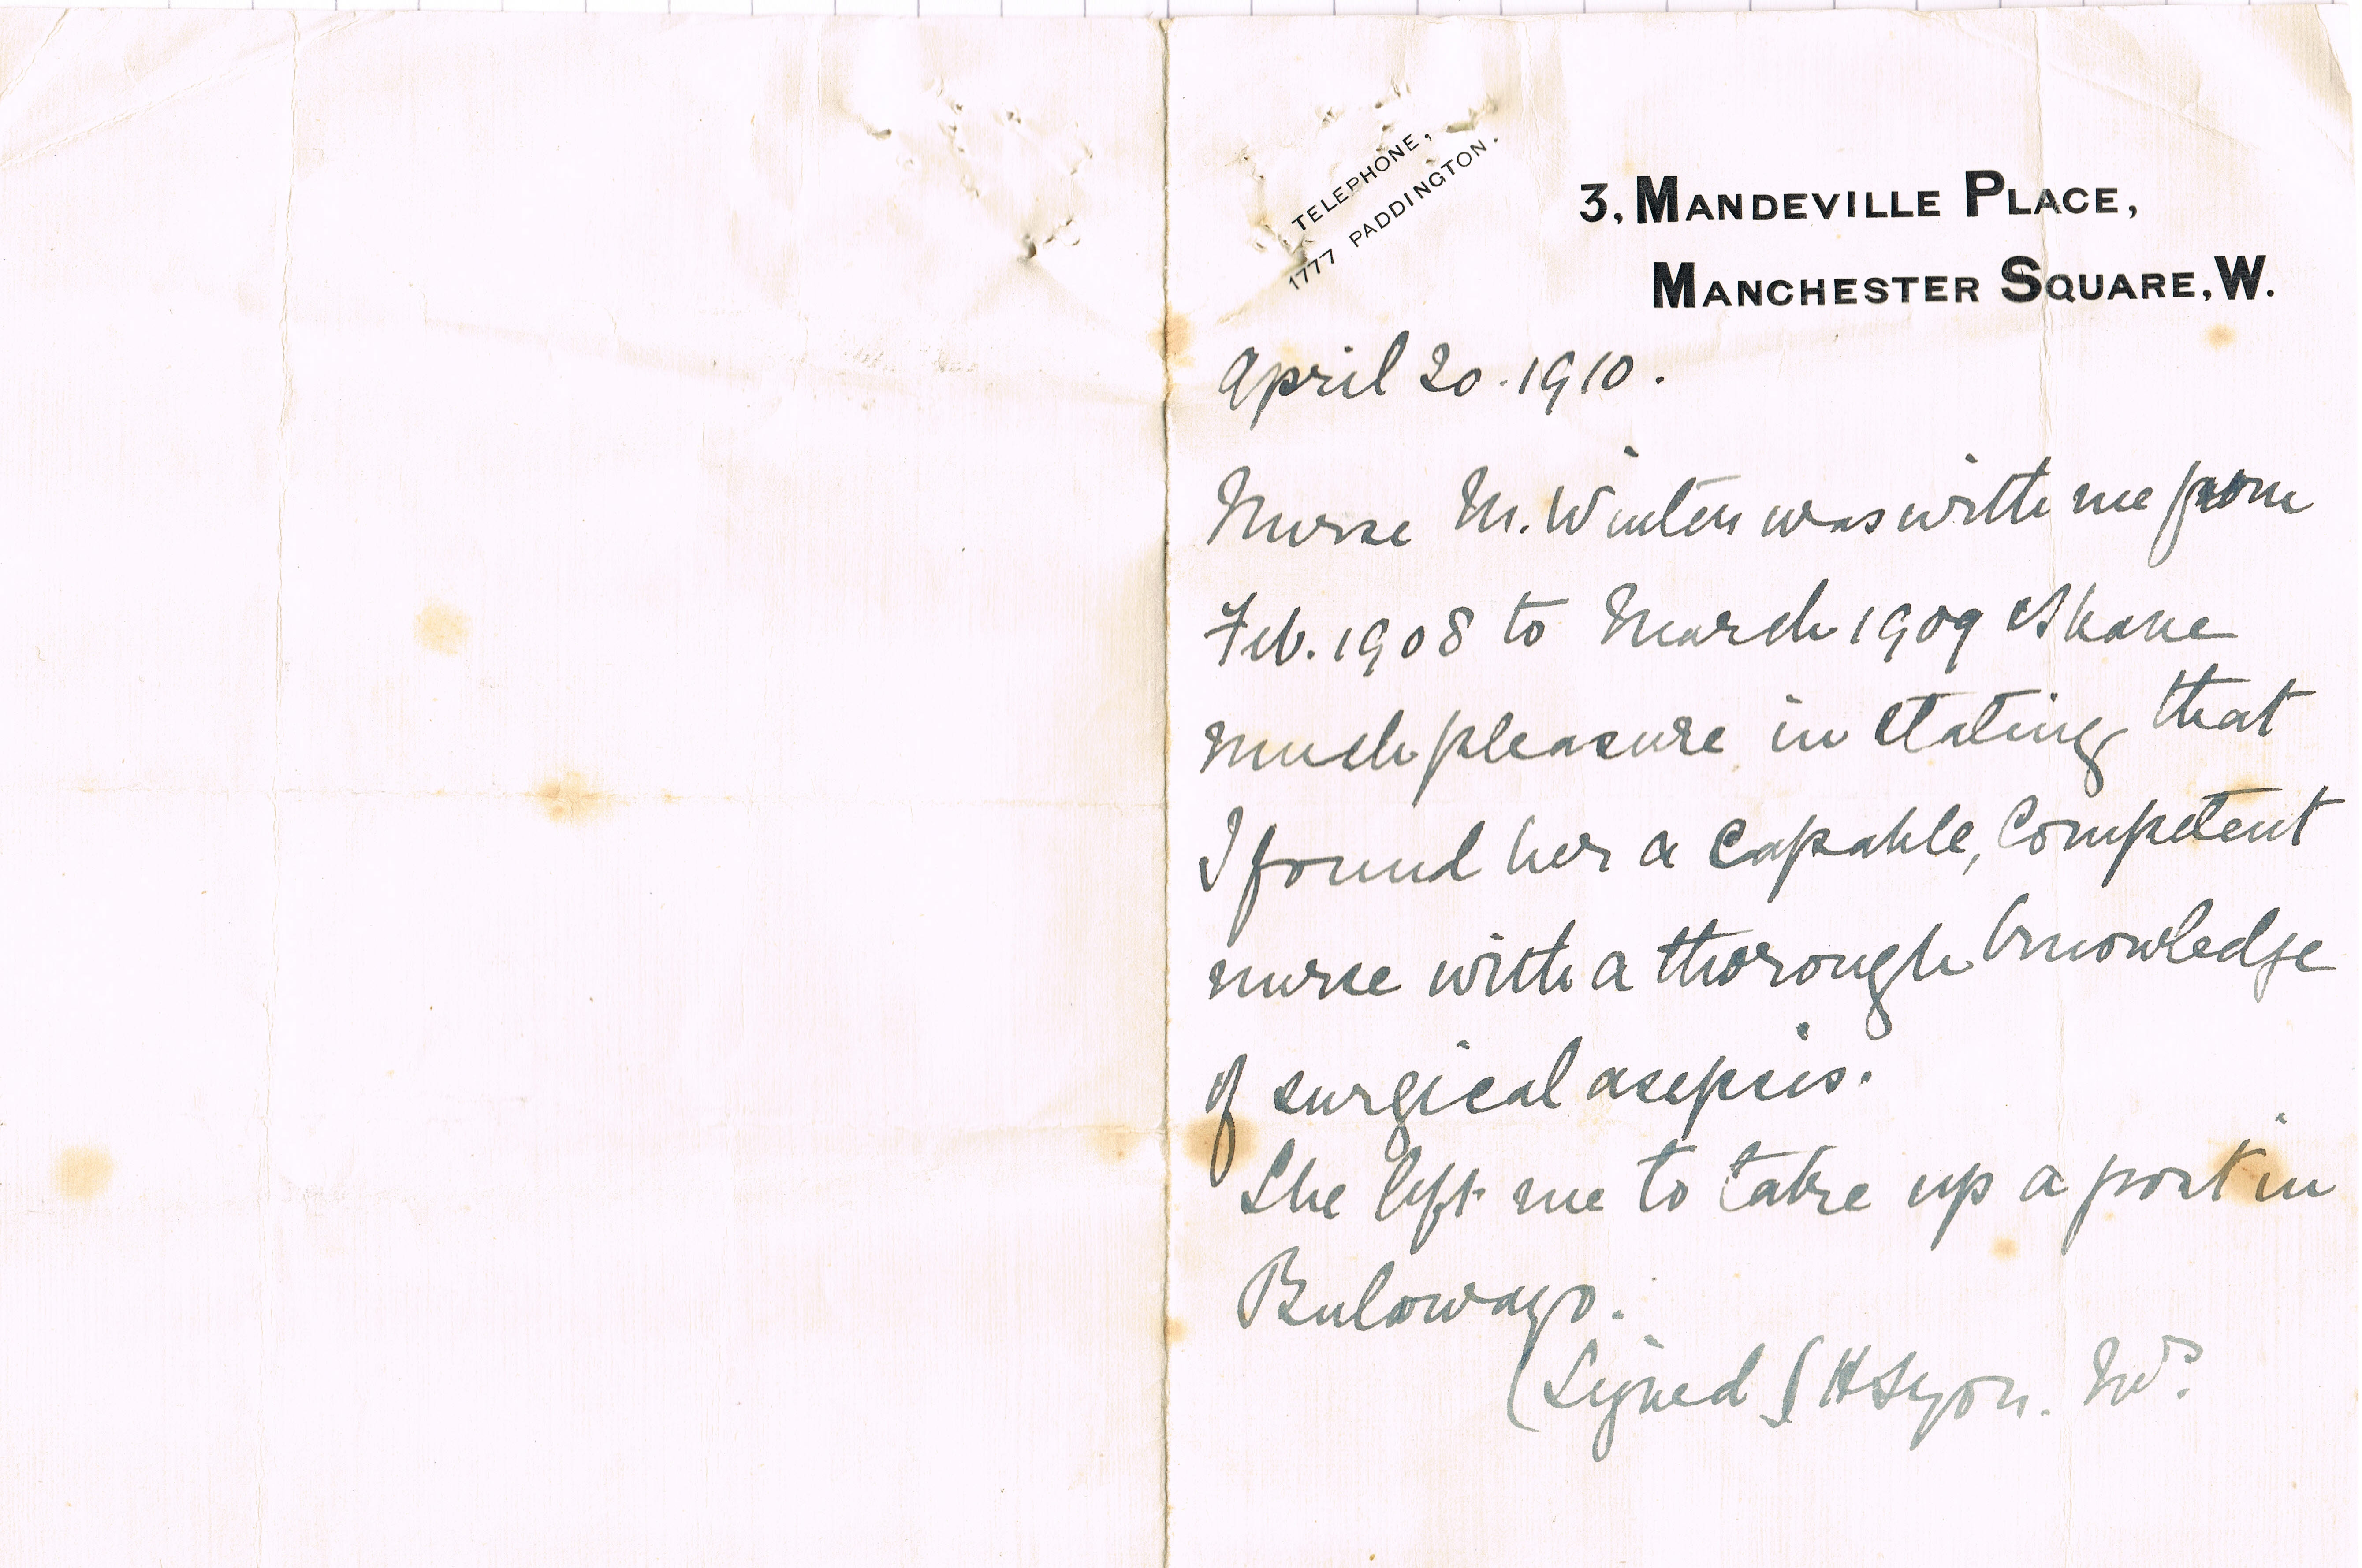 TELEPHONE,
1777 PADDINGTON.
3, MANDEVILLE PLACE,
MANCHESTER SQUARE, W.
April 20. 1910.
Nurse M. Winter was with me from
Feb. 1908 to March 1909 & I have
much pleasure in stating that
I found her a capable, competent
nurse with a thorough knowledge
of surgical asepsis.
She left me to take up a post in
Bulowayo.
(Signed H Lyon.